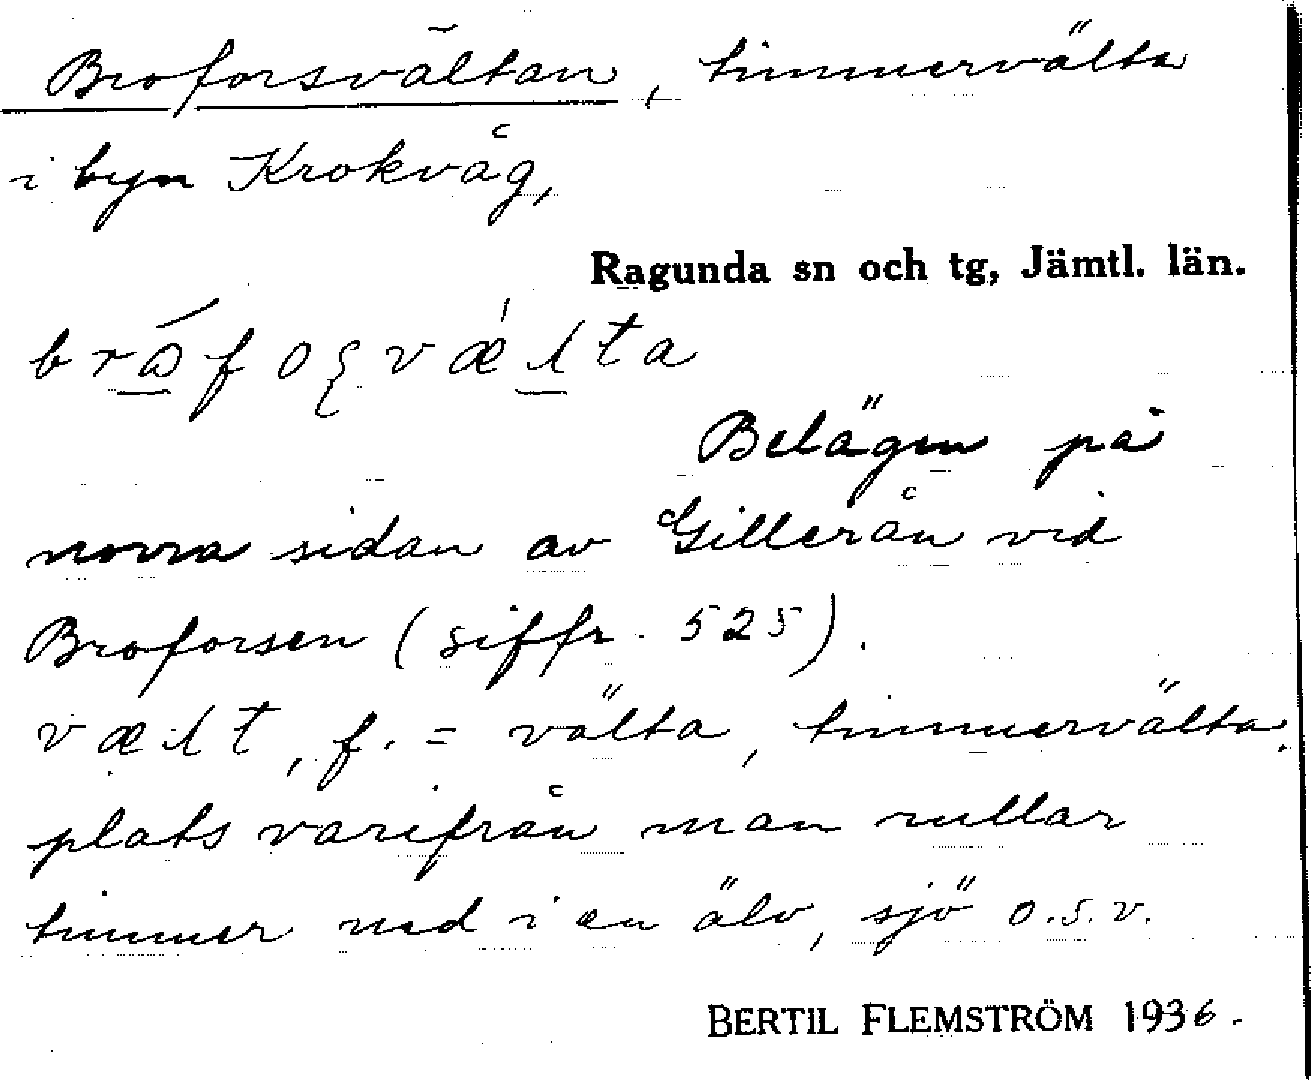 Broforsvältan, timmervälta
i byn Krokvåg,
Ragunda sn och tg, Jämtl. län.
Belägen på
norra sidan av Gillerån vid
Broforsen (siffr. 525).
væɩt, f. = välta, timmervälta,
plats varifrån man rullar
timmer ned i en älv, sjö o.s.v.
BERTIL FLEMSTRÖM 1936.